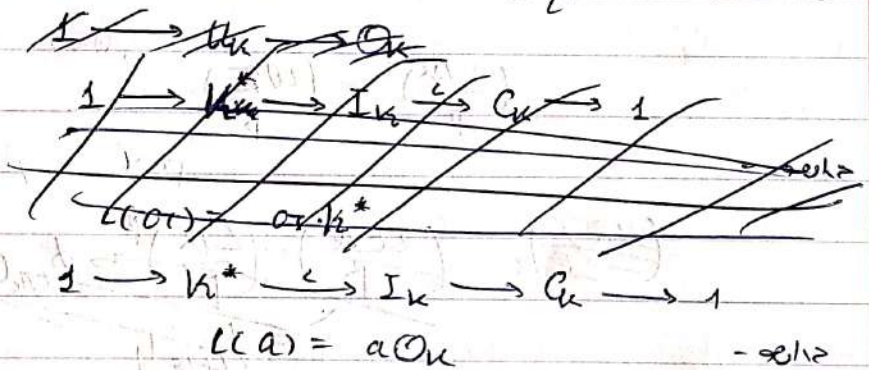 1 → U_K → O_K
1 → K^* → I_K →^ι C_K → 1
ι(α) = α·K^*
1 → K^* →^ι I_K → C_K → 1
ι(a) = aO_K